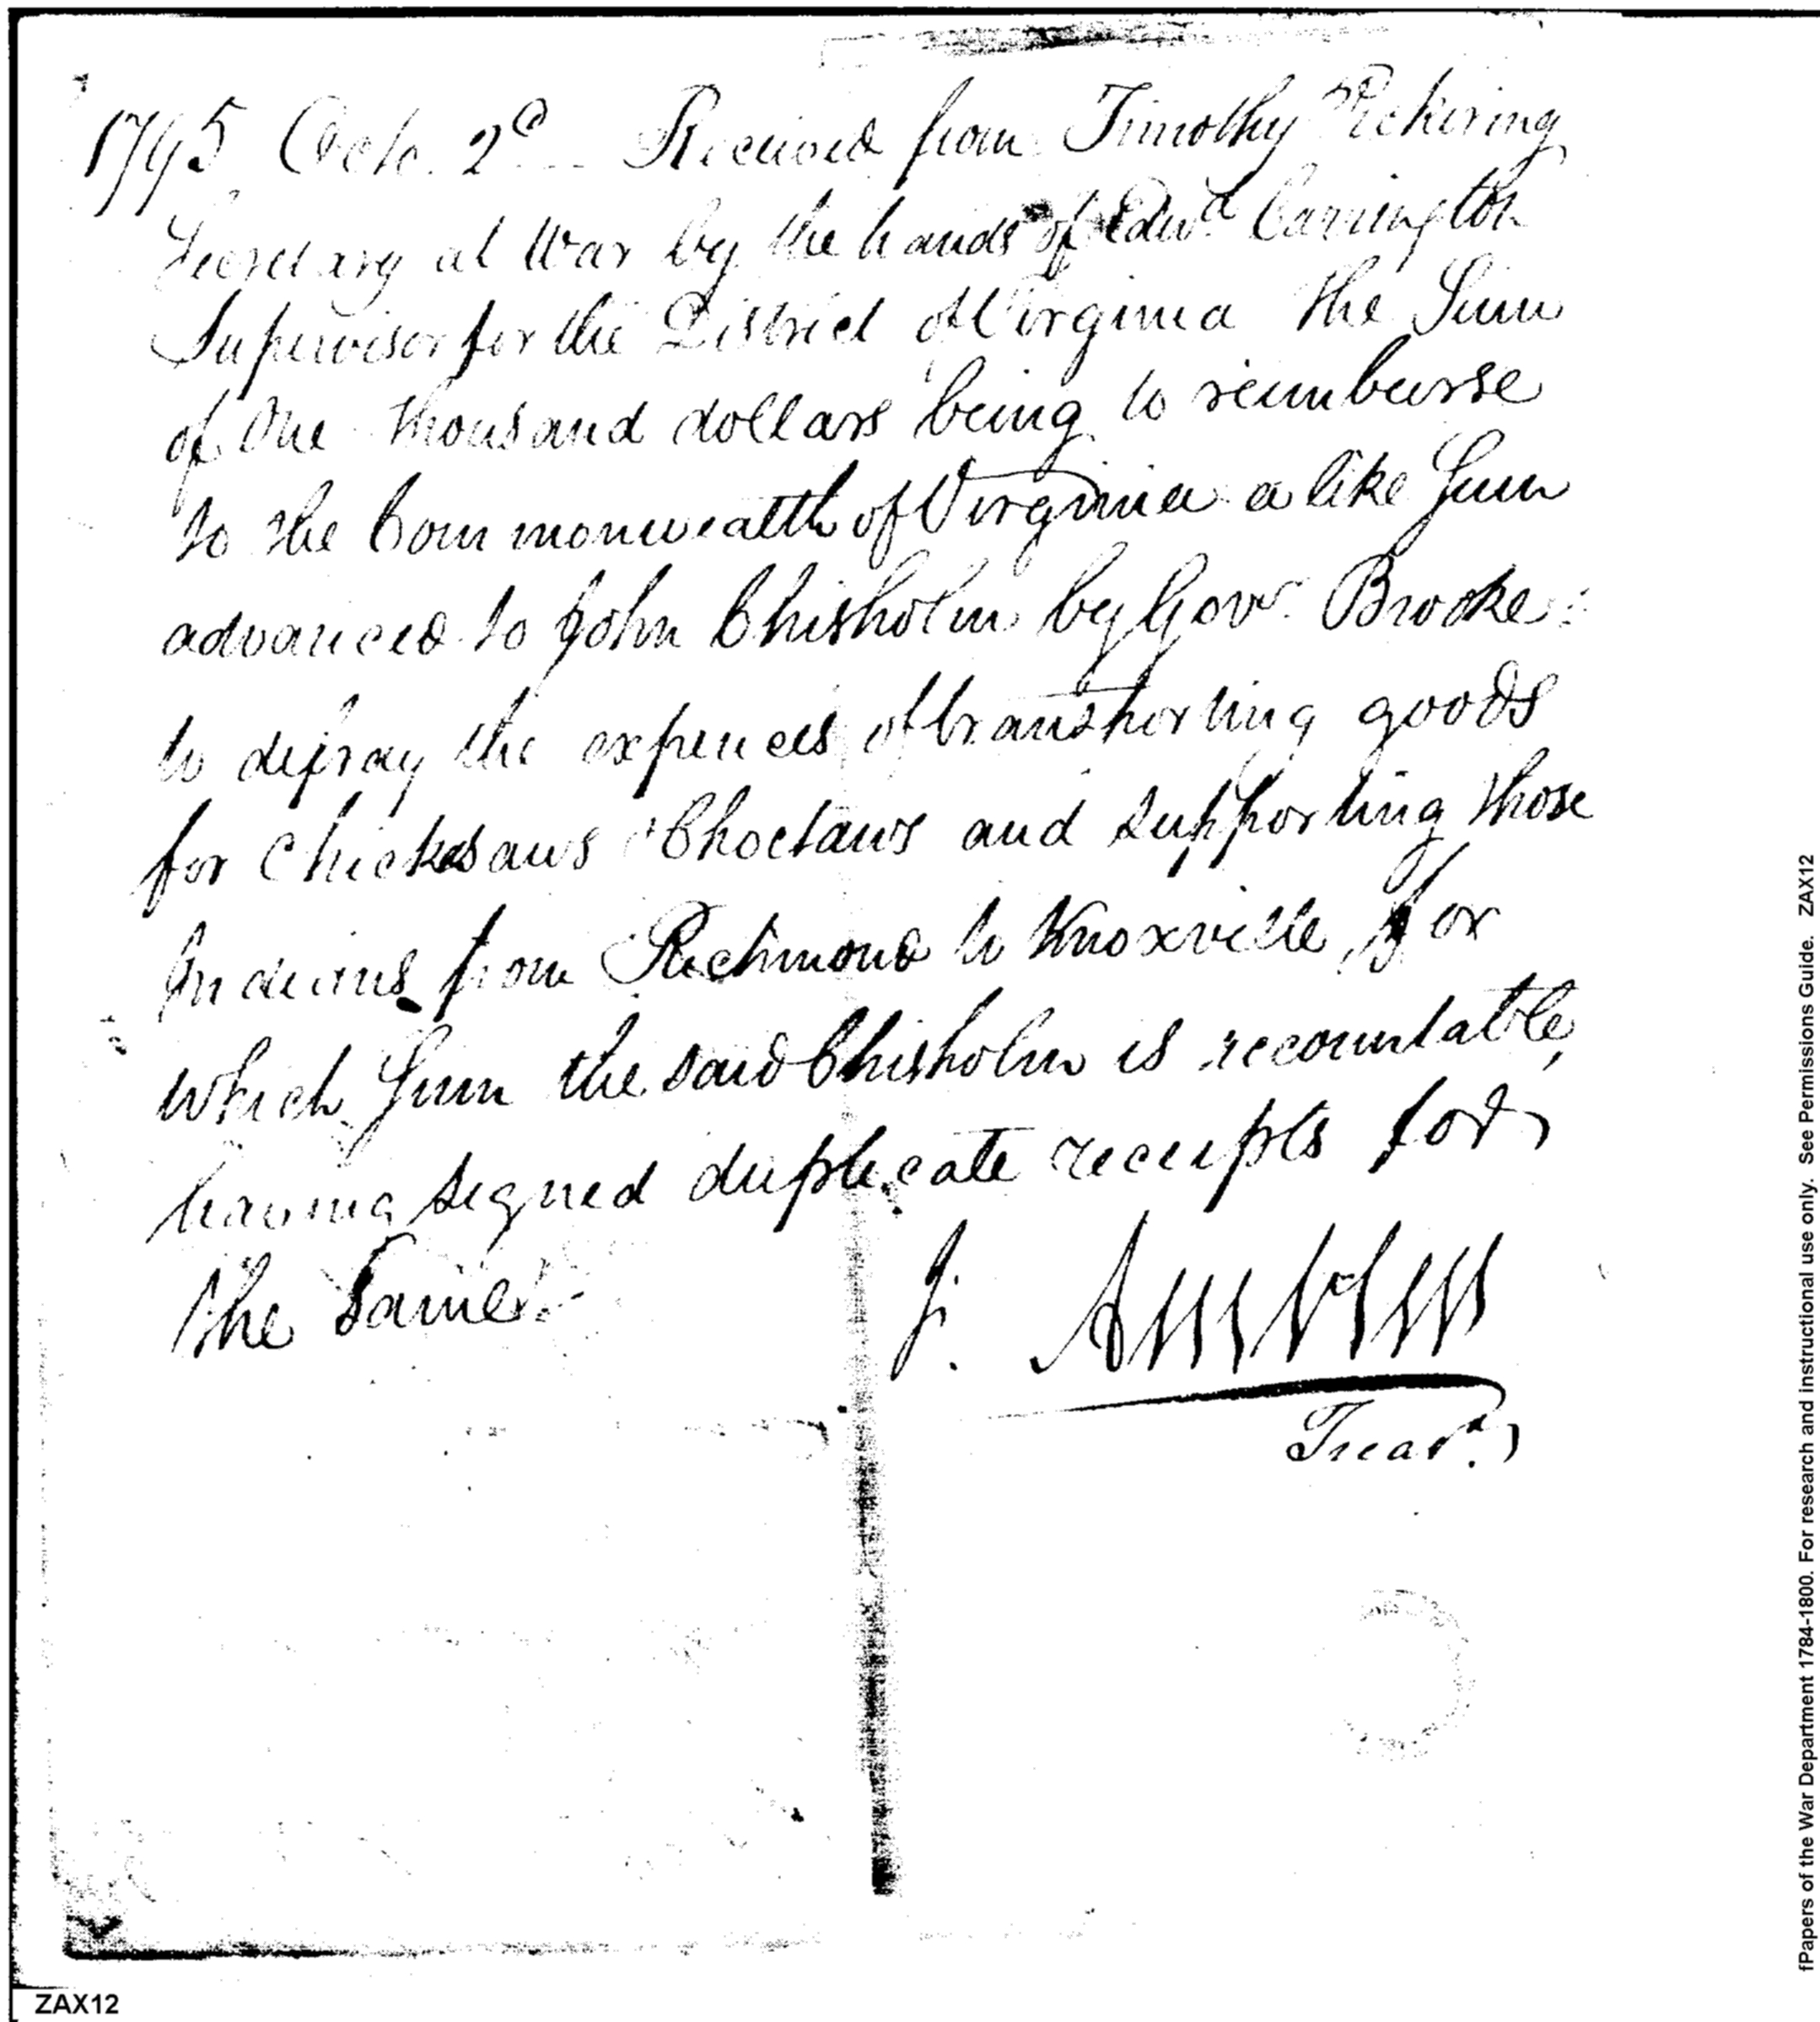 1795 Octo. 2d Received from Timothy Pickering
Secretary at War by the hands of Edwd Carrington
Supervisor for the District of Virginia the Sum
of One thousand dollars being to reimburse
to the Commonwealth of Virginia a like Sum
advanced to John Chisholm by Govr. Brooke
to defray the expences of transporting goods
for Chickesaws & Choctaws and supporting those
Indians from Richmond to Knoxville, for
which Sum the said Chisholm is accountable,
having signed duplicate receipts for
the Same.
J. Ambler
Treasr.
ZAX12
fPapers of the War Department 1784-1800. For research and instructional use only. See Permissions Guide. ZAX12